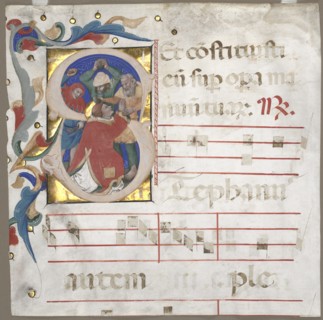 Et cōstituisti
eū sup opa ma
nuū tuaꝝ. ℟.
Stephanu
autem ple